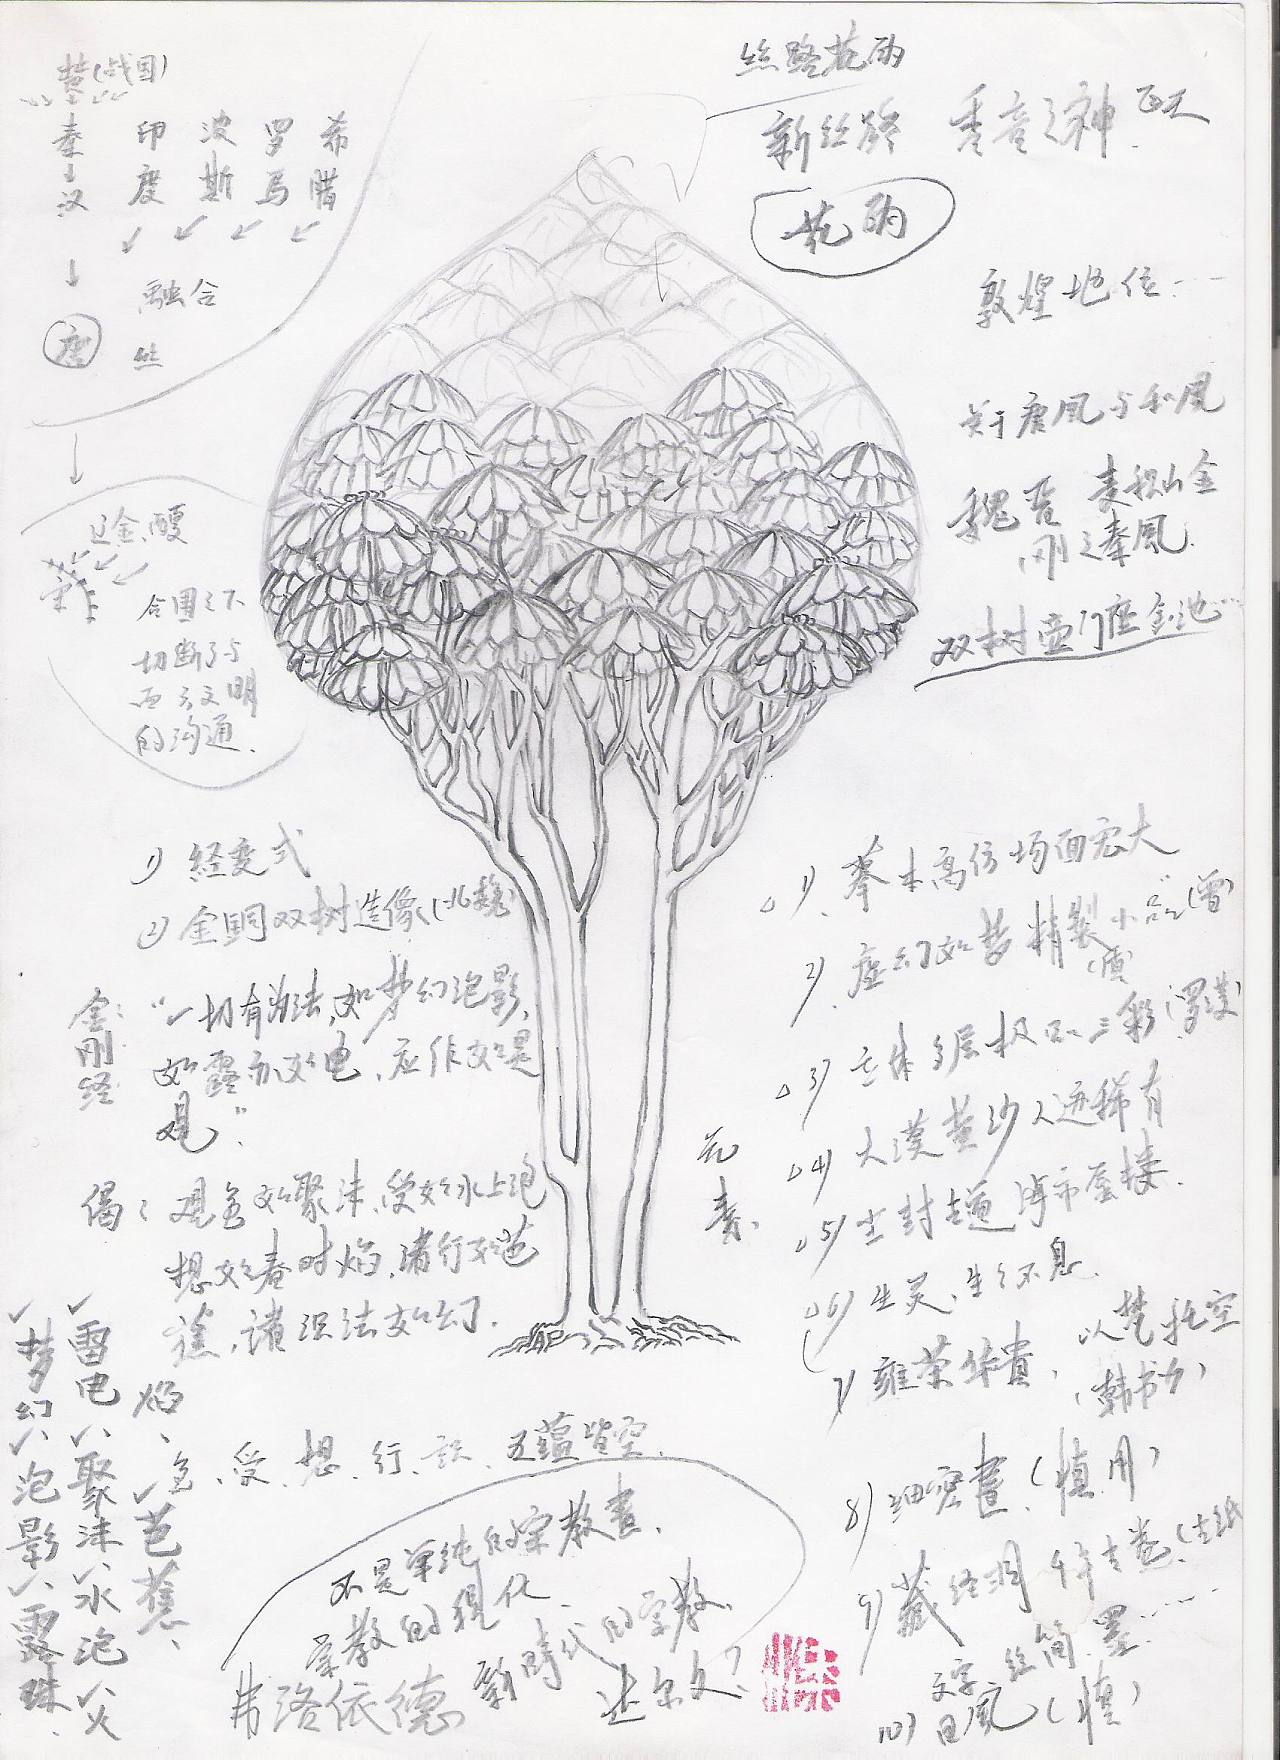 丝路花雨
新丝路 香音之神 飞天
花雨
楚(战国)
秦
汉
唐
印度
波斯
罗马
希腊
融合
丝
敦煌地位……
关于唐风与和风
魏晋 麦积山金刚之秦风
双树壶门座金池…
辽金夏
合围之下
切断了与
西方文明
的沟通.
1) 经变式
2) 金铜双树造像(北魏)
金刚经:
“一切有为法,如梦幻泡影,
如露亦如电,应作如是
观”.
偈:观色如聚沫,受如水上泡
想如春时焰,诸行如芭
蕉,诸识法如幻.
色、受、想、行、识、五蕴皆空.
梦幻、泡影、露珠.
雷电、聚沫、水泡、火
焰、芭蕉、
1) 摹本高仿场面宏大
2) 虚幻如梦精製小品”
3) 立体多层极品三彩
4) 大漠黄沙人迹稀有
5) 尘封古道海市蜃楼.
6) 生灵、生生不息.
7) 雍荣华貴,以梵托空
(韩书力)
8) 细密畫(慎用)
9) 藏经洞千年古卷(古纸
文字 丝 简 墨……
10) 日風(慎)
花
素.
不是单纯的宗教畫.
宗教的现代
新時代的宗教.
弗洛依德
达尔文?